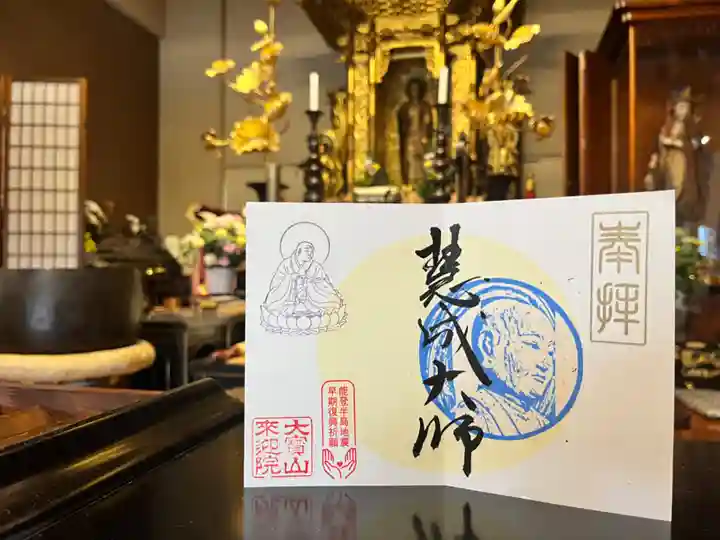 奉拝
慧成大師
能登半島地震
早期復興祈願
大寳山
來迎院